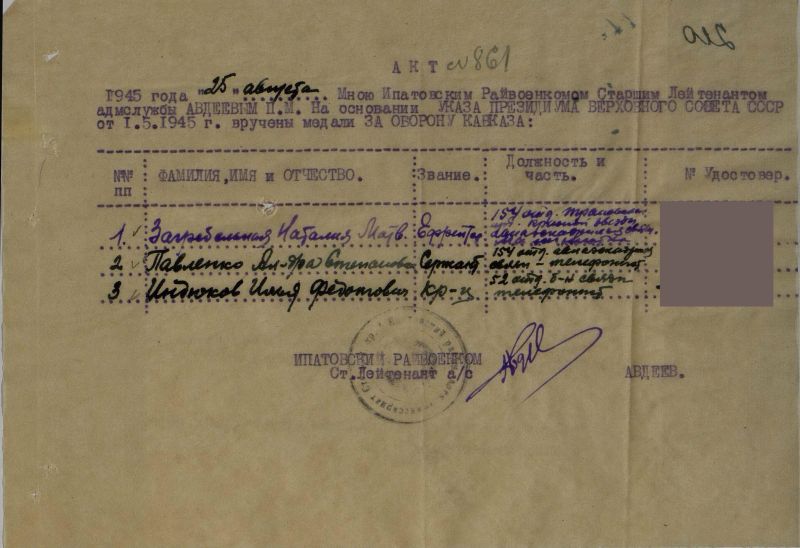 210
АКТ №861
1945 года "25" августа Мною Ипатовским Райвоенкомом Старшим Лейтенантом
адмслужбы АВДЕЕВЫМ П.М. На основании УКАЗА ПРЕЗИДИУМА ВЕРХОВНОГО СОВЕТА СССР
от 1.5.1945 г. вручены медали ЗА ОБОРОНУ КАВКАЗА:
№№ пп ФАМИЛИЯ,ИМЯ и ОТЧЕСТВО. Звание. Должность и часть. № Удостовер.
1 Загребельная Наталия Матв. Ефрейтор 154 отд.
2 Павленко Степановна Сержант 154 отд. связи - телефонист
3 Индюков Илья Федотович Кр-ц 52 отд. б-н связи телефонист
ИПАТОВСКИЙ РАЙВОЕНКОМ
Ст.Лейтенант а/с АВДЕЕВ.